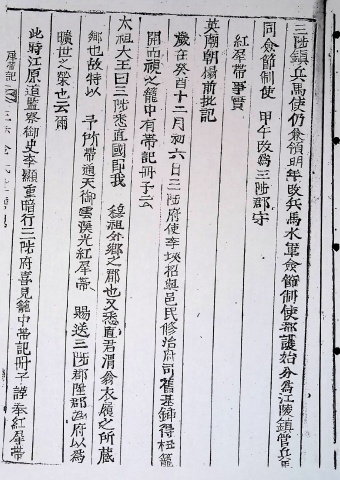 三陟鎮兵馬使仍兼領明年改兵馬水軍僉節制使都護始分爲江陵鎮管兵馬
同僉節制使 甲午改爲三陟郡守
紅犀帶事實
英廟朝楊前批記
歲在癸酉十二月初六日三陟府使李 招與邑民修治府司舊基鋪得杻籠
開而視之籠中有帶記冊子云
太祖大王曰三陟悉直國即我 穆祖外鄕之郡也又悉直君渭翁衣履之所藏
鄕也故特以 予所帶通天御雲漢光紅犀帶 賜送三陟郡陞郡爲府以爲
曠世之榮也云爾
此時江原道監察御史李顯重暗行三陟府喜見籠中帶記冊子謹奉紅犀帶